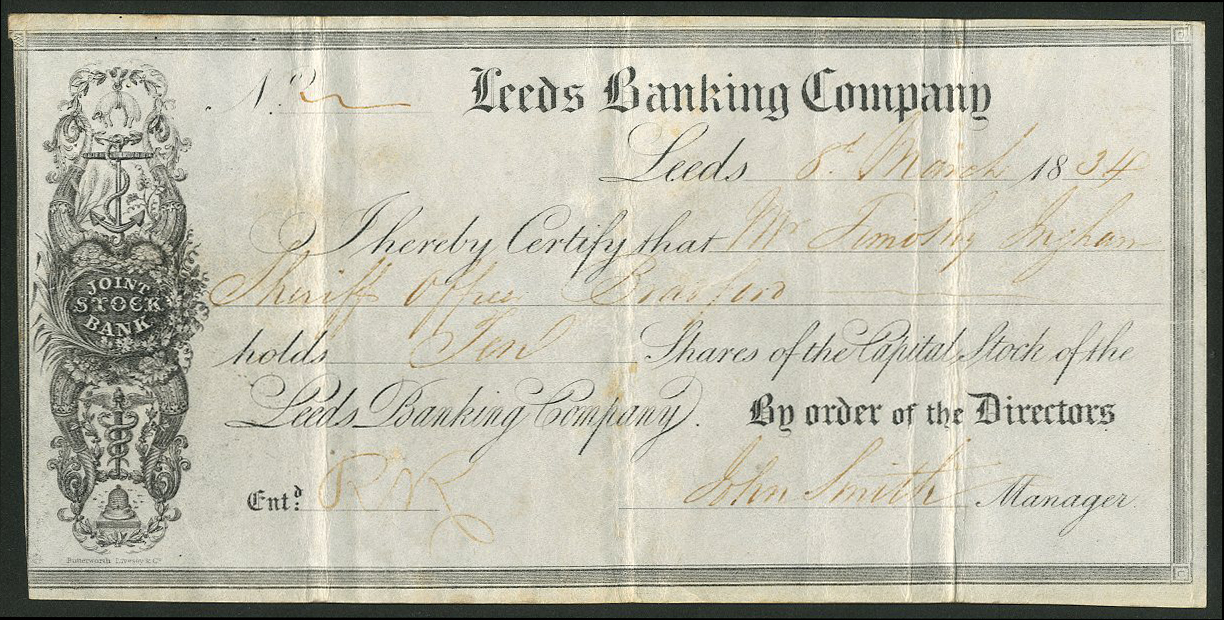 No. 2
Leeds Banking Company
Leeds 8th March 1834
I hereby Certify that Mr Timothy Ingham
Sheriff Office Bradford
holds Ten Shares of the Capital Stock of the
Leeds Banking Company. By order of the Directors
Entd: John Smith Manager.
JOINT
STOCK
BANK
Butterworth Livesay & Co.